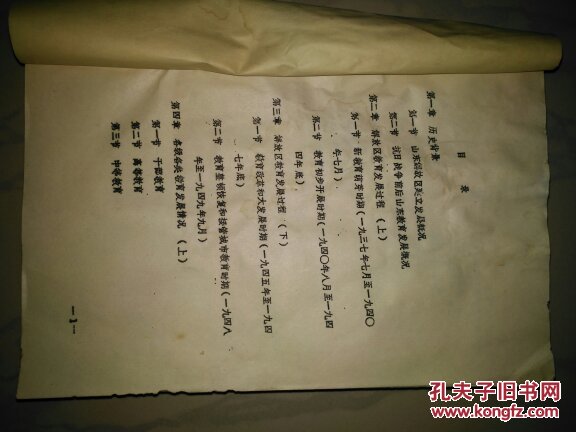 目录
第一章 历史背景
第一节 山东解放区建立发展概况
第二节 抗日战争前后山东教育发展概况
第二章 解放区教育发展过程（上）
第一节 新教育萌芽时期（一九三七年七月至一九四〇
年七月）
第二节 教育初步开展时期（一九四〇年八月至一九四
四年底）
第三章 解放区教育发展过程（下）
第一节 教育改革和大发展时期（一九四五年至一九四
七年底）
第二节 教育整顿恢复和接管城市教育时期（一九四八
年至一九四九年九月）
第四章 各级各类教育发展情况（上）
第一节 干部教育
第二节 高等教育
第三节 中等教育
—1—
孔夫子旧书网
www.kongfz.com